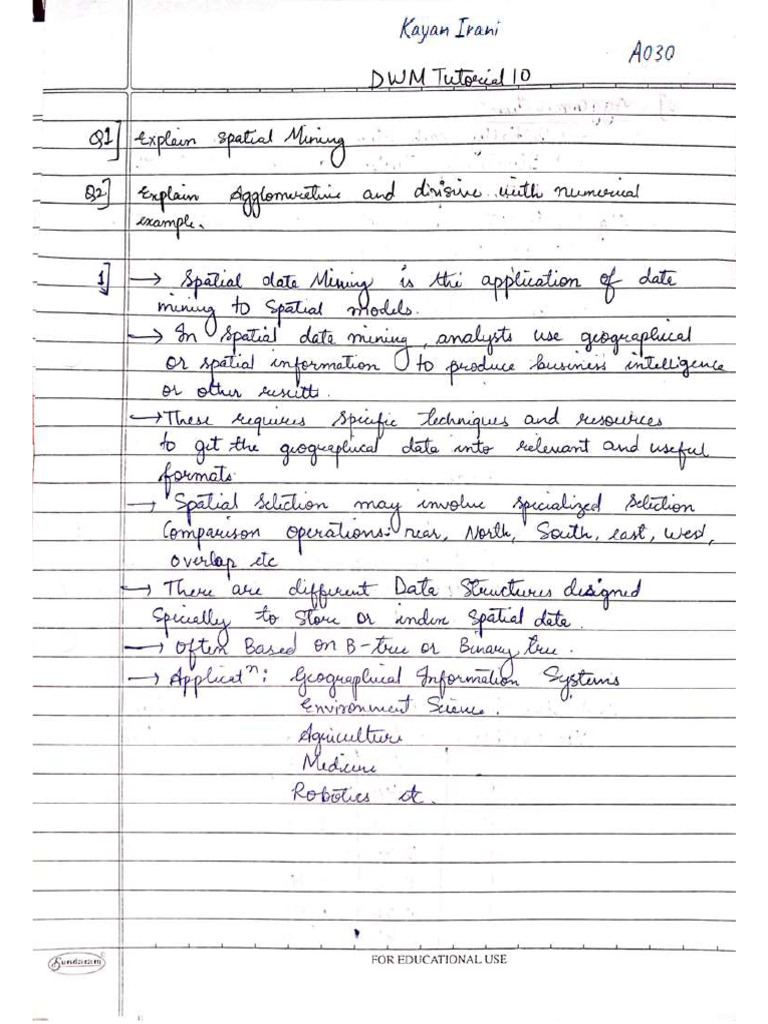 Kayan Irani
A030
DWM Tutorial 10
Q1] Explain Spatial Mining
Q2] Explain Agglomerative and divisive with numerical
example.
1] → Spatial data Mining is the application of data
mining to Spatial models.
→ In Spatial data mining, analysts use geographical
or spatial information to produce business intelligence
or other results.
→ These requires specific techniques and resources
to get the geographical data into relevant and useful
formats.
→ Spatial Selection may involve specialized selection
Comparison operations: near, North, South, east, west,
overlap etc
→ There are different Data Structures designed
Specially to Store or index Spatial data.
→ Often Based on B-tree or Binary tree.
→ Applicatⁿ: Geographical Information Systems
Environment Science.
Agriculture
Medicine
Robotics etc.
Sundaram
FOR EDUCATIONAL USE